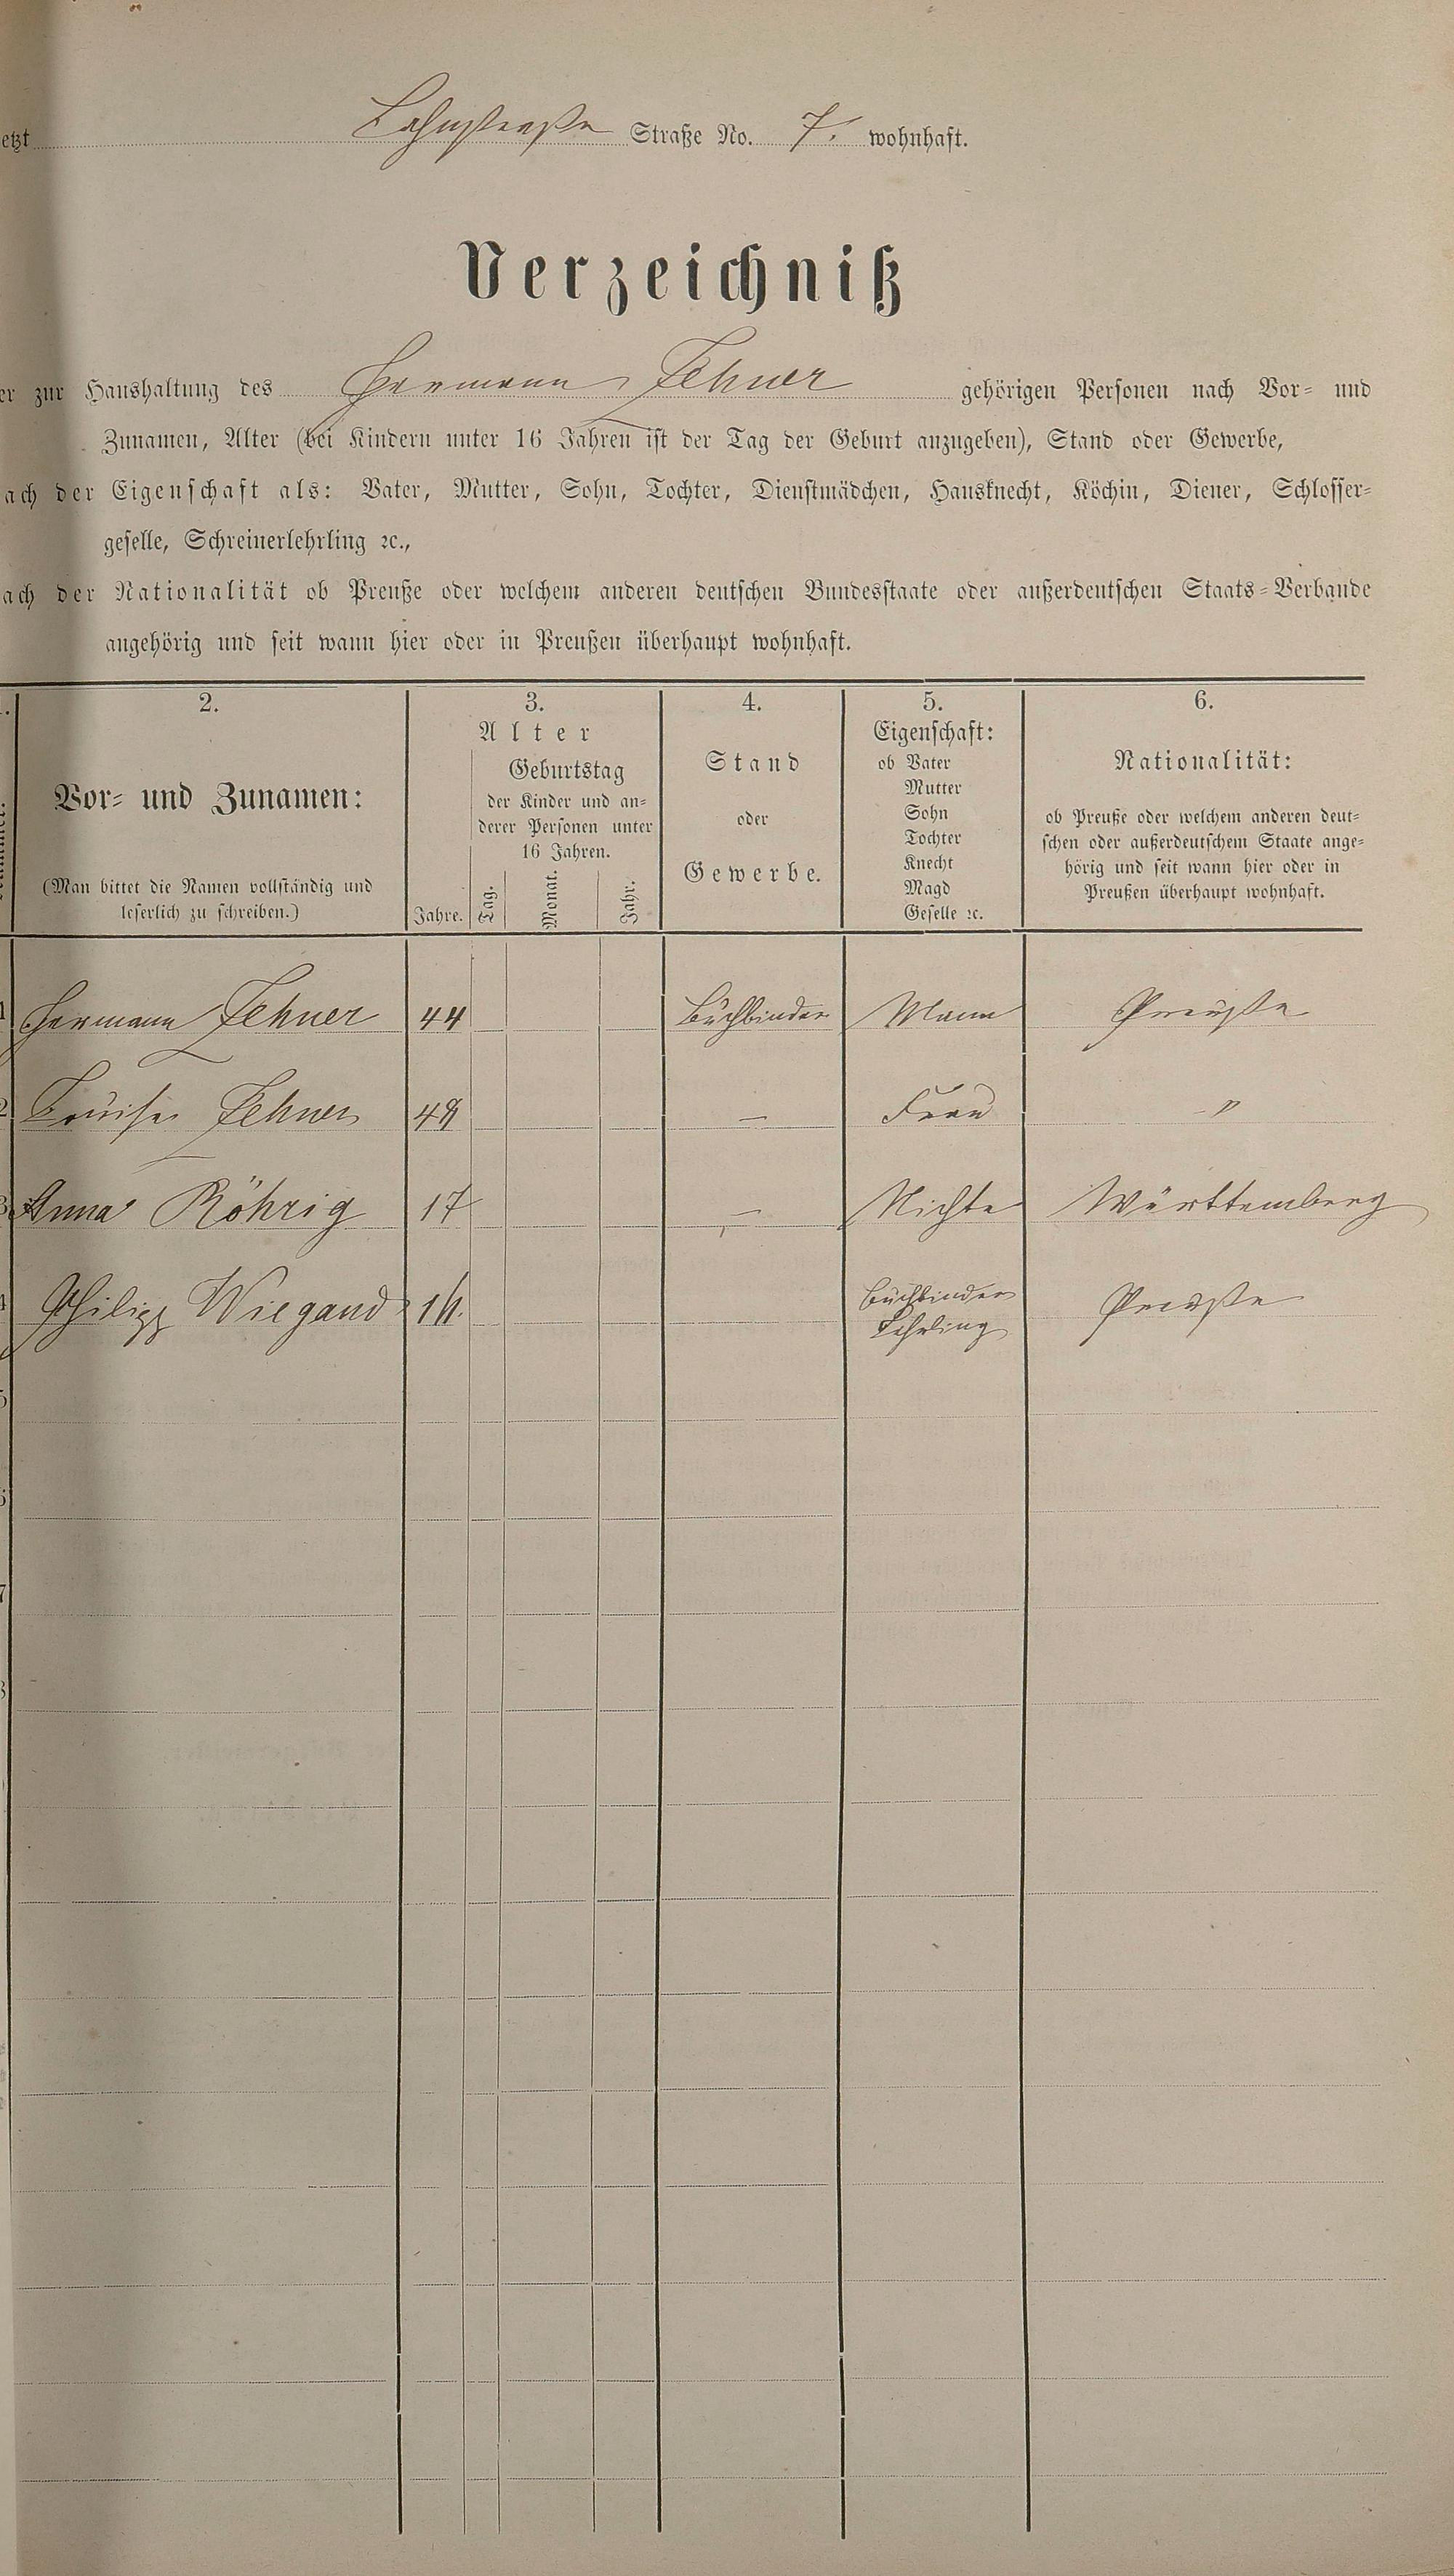 etzt Lahnstraße Straße No. 7. wohnhaft.
Verzeichniß
er zur Haushaltung des Hermann Zehner gehörigen Personen nach Vor- und
Zunamen, Alter (bei Kindern unter 16 Jahren ist der Tag der Geburt anzugeben), Stand oder Gewerbe,
ach der Eigenschaft als: Vater, Mutter, Sohn, Tochter, Dienstmädchen, Hausknecht, Köchin, Diener, Schlosser-
geselle, Schreinerlehrling ꝛc.,
ach der Nationalität ob Preuße oder welchem anderen deutschen Bundesstaate oder außerdeutschen Staats-Verbande
angehörig und seit wann hier oder in Preußen überhaupt wohnhaft.
2.
Vor- und Zunamen:
(Man bittet die Namen vollständig und
leserlich zu schreiben.)
3.
Alter
Geburtstag
der Kinder und an-
derer Personen unter
16 Jahren.
Jahre. Tag. Monat. Jahr.
4.
Stand
oder
Gewerbe.
5.
Eigenschaft:
ob Vater
Mutter
Sohn
Tochter
Knecht
Magd
Geselle ꝛc.
6.
Nationalität:
ob Preuße oder welchem anderen deut-
schen oder außerdeutschem Staate ange-
hörig und seit wann hier oder in
Preußen überhaupt wohnhaft.
1 Hermann Zehner 44 Buchbinder Mann Preuße
2 Louise Zehner 48 — Frau "
3 Anna Röhrig 17 — Nichte Württemberg
4 Philipp Wiegand Buchbinder Preuße
Lehrling
5
6
7
8